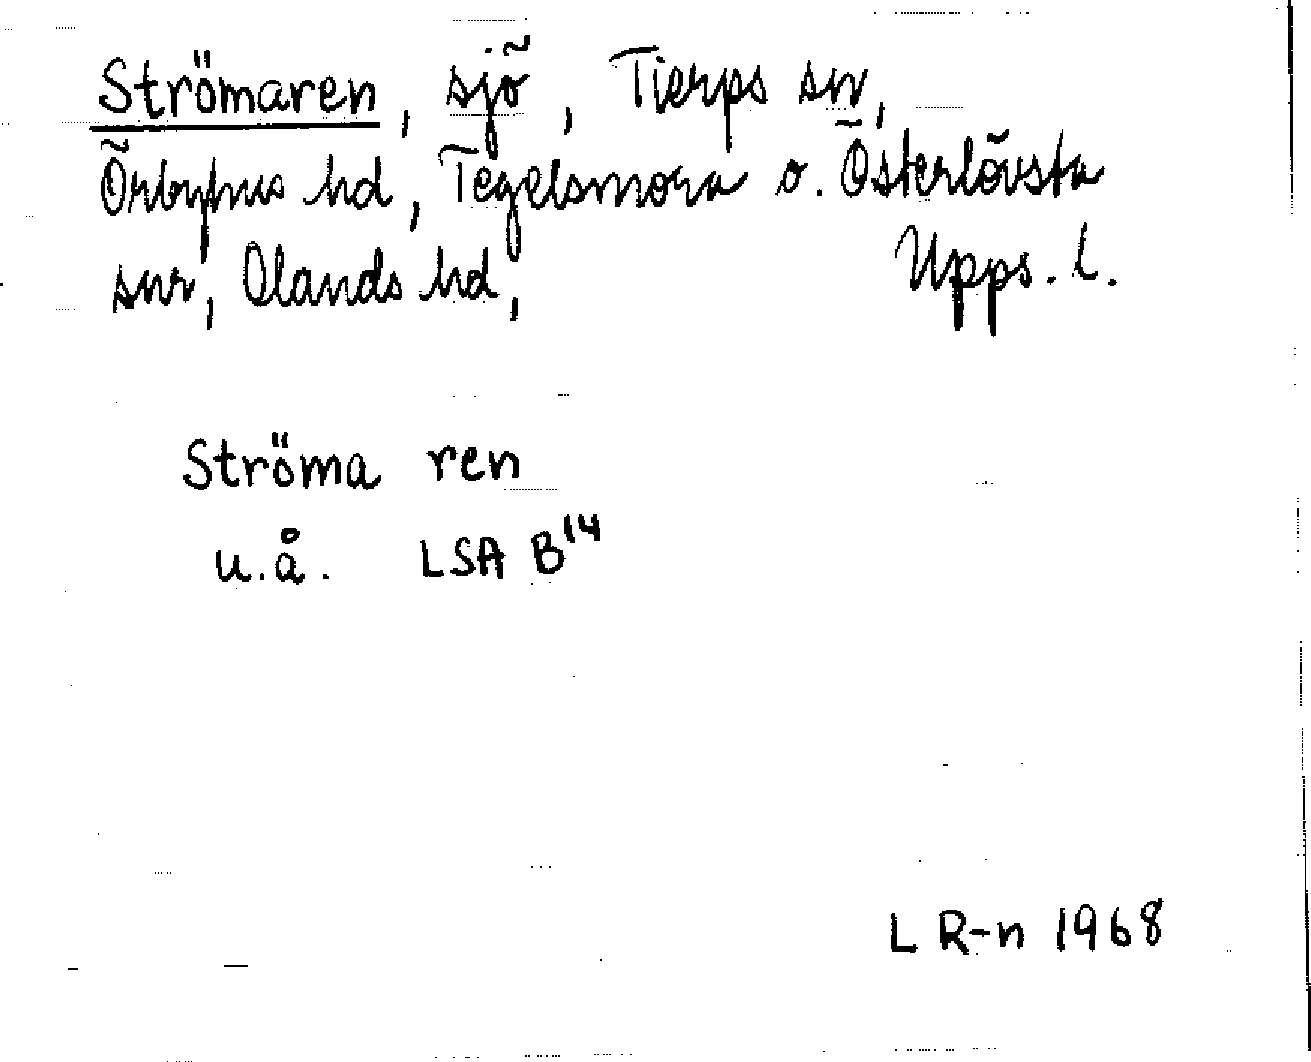 Strömaren, sjö, Tierps sn,
Örbyhus hd, Tegelsmora o. Österlövsta
snr, Olands hd, Upps. l.
Ströma ren
u.å. LSA B¹⁴
L R-n 1968